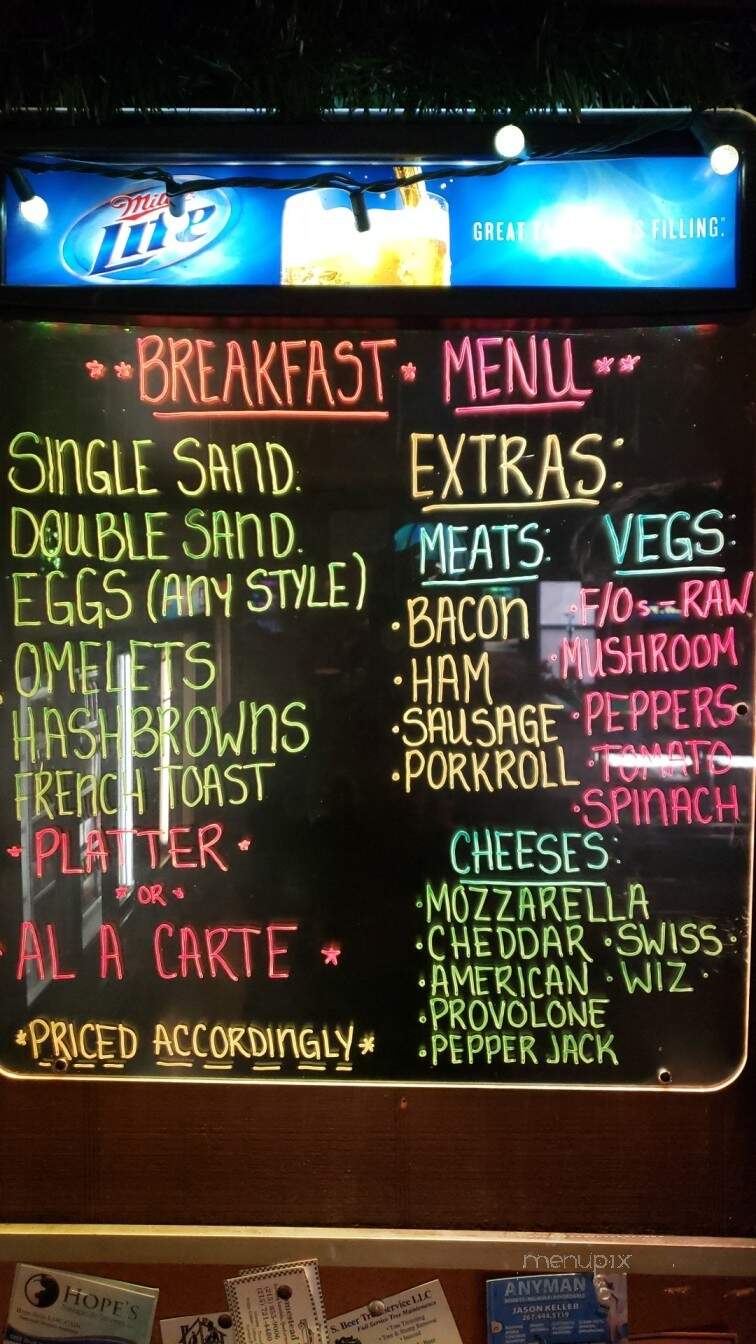 Miller
Lite
GREAT FILLING.
**BREAKFAST * MENU**
SINGLE SAND.
DOUBLE SAND.
EGGS (ANY STYLE)
OMELETS
HASHBROWNS
FRENCH TOAST
* PLATTER *
* OR *
* AL A CARTE *
*PRICED ACCORDINGLY*
EXTRAS:
MEATS:
• BACON
• HAM
• SAUSAGE
• PORKROLL
VEGS:
• F/Os - RAW
• MUSHROOM
• PEPPERS
• TOMATO
• SPINACH
CHEESES:
• MOZZARELLA
• CHEDDAR • SWISS •
• AMERICAN • WIZ •
• PROVOLONE
• PEPPER JACK
menupix
HOPE'S
Service LLC
Full Service Tree Maintenance
• Tree Trimming
ANYMAN
JASON KELLER
267.444.5119